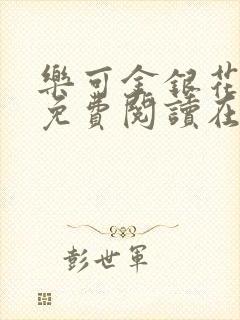 樂可金銀花
免費閱讀在
彭世軍